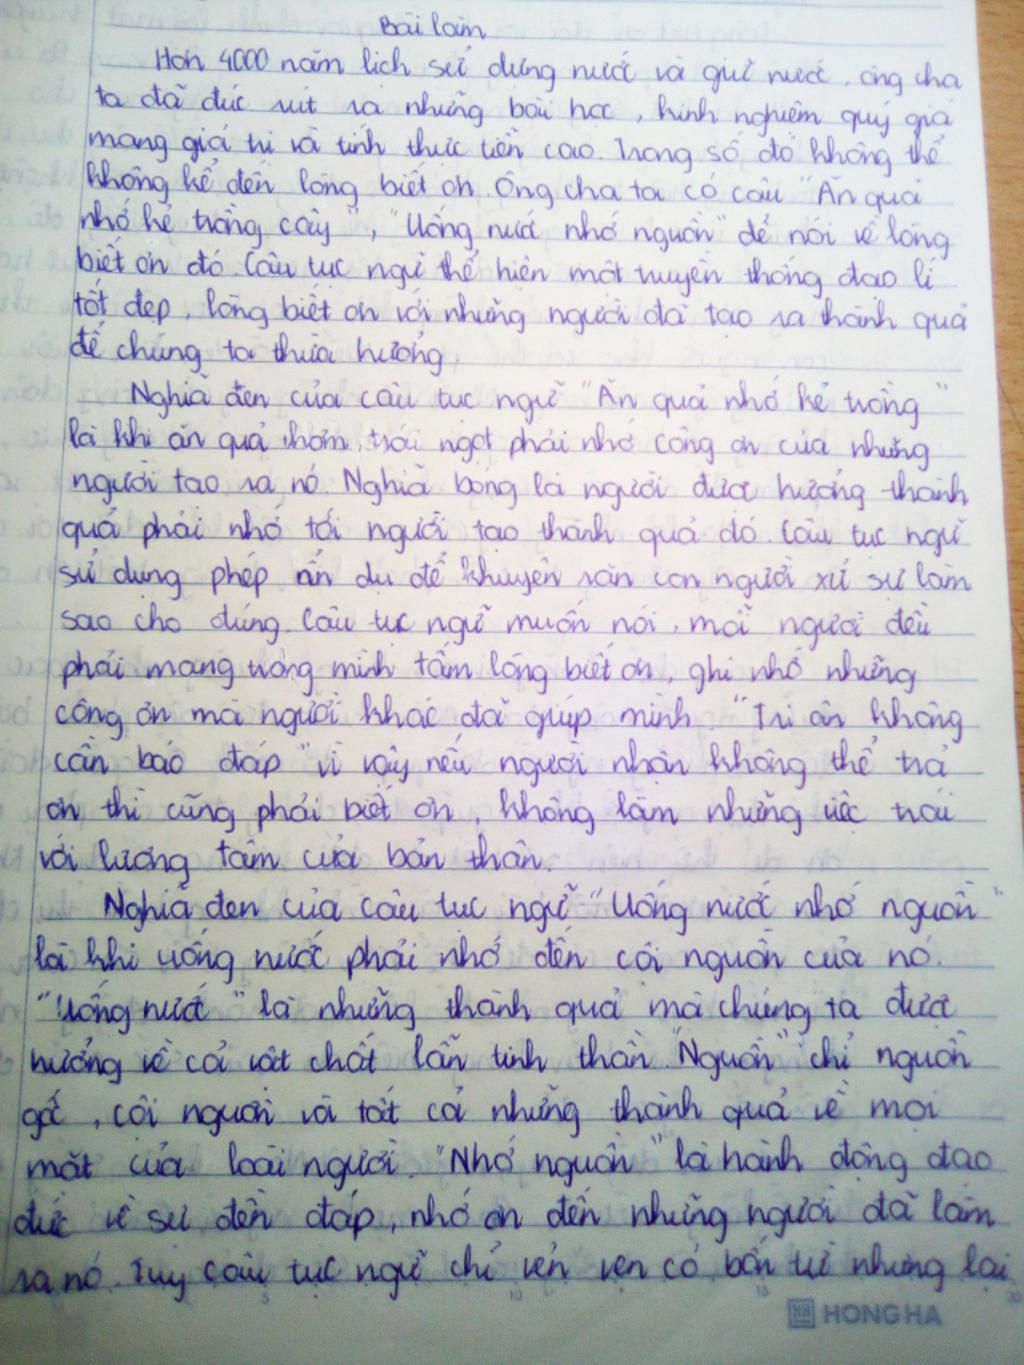 Bài làm
Hơn 4000 năm lịch sử dựng nước và giữ nước, ông cha
ta đã đúc rút ra những bài học, kinh nghiệm quý giá
mang giá trị và tính thực tiễn cao. Trong số đó không thể
không kể đến lòng biết ơn. Ông cha ta có câu "Ăn quả
nhớ kẻ trồng cây", "Uống nước nhớ nguồn" để nói về lòng
biết ơn đó. Câu tục ngữ thể hiện một truyền thống đạo lí
tốt đẹp, lòng biết ơn với những người đã tạo ra thành quả
để chúng ta thừa hưởng
Nghĩa đen của câu tục ngữ "Ăn quả nhớ kẻ trồng"
là khi ăn quả thơm, trái ngọt phải nhớ công ơn của những
người tạo ra nó. Nghĩa bóng là người được hưởng thành
quả phải nhớ tới người tạo thành quả đó. Câu tục ngữ
sử dụng phép ẩn dụ để khuyên răn con người xử sự làm
sao cho đúng. Câu tục ngữ muốn nói, mỗi người đều
phải mang trong mình tấm lòng biết ơn, ghi nhớ những
công ơn mà người khác đã giúp mình. "Tri ân không
cần báo đáp" vì vậy nếu người nhận không thể trả
ơn thì cũng phải biết ơn, không làm những việc trái
với lương tâm của bản thân.
Nghĩa đen của câu tục ngữ "Uống nước nhớ nguồn"
là khi uống nước phải nhớ đến cội nguồn của nó.
"Uống nước" là những thành quả mà chúng ta được
hưởng về cả vật chất lẫn tinh thần. "Nguồn" chỉ nguồn
gốc, cội nguồn và tất cả những thành quả về mọi
mặt của loài người. "Nhớ nguồn" là hành động đạo
đức về sự đền đáp, nhớ ơn đến những người đã làm
ra nó. Tuy câu tục ngữ chỉ vẻn vẹn có bốn từ nhưng lại
HONG HA